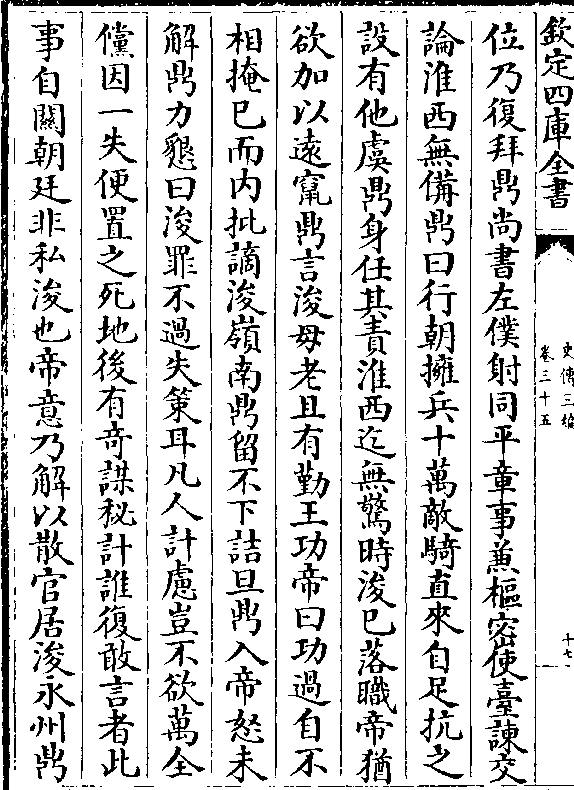 欽定四庫全書
史傳三編
卷三十五
十七
位乃復拜鼎尚書左僕射同平章事兼樞密使臺諫交
論淮西無備鼎曰行朝擁兵十萬敵騎直來自足抗之
設有他虞鼎身任其責淮西迄無驚時浚已落職帝猶
欲加以遠竄鼎言浚母老且有勤王功帝曰功過自不
相掩已而内批謫浚嶺南鼎留不下詰旦鼎入帝怒未
解鼎力懇曰浚罪不過失策耳凡人計慮豈不欲萬全
儻因一失便置之死地後有奇謀秘計誰復敢言者此
事自關朝廷非私浚也帝意乃解以散官居浚永州鼎